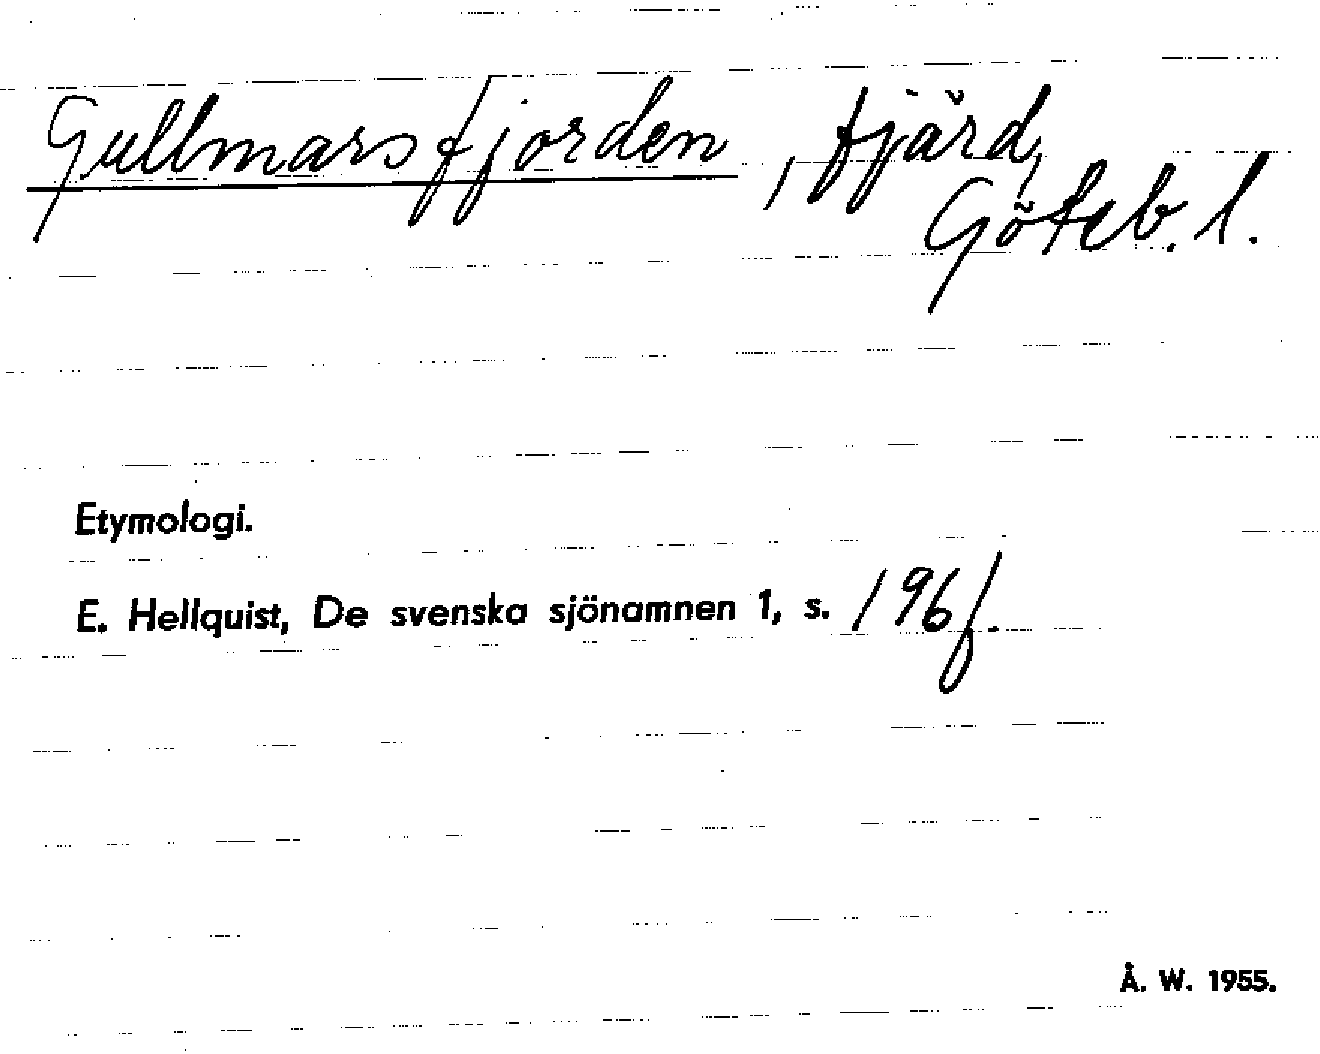 Gullmarsfjorden, fjärd,
Göteb. l.
Etymologi.
E. Hellquist, De svenska sjönamnen 1, s. 196 f.
Å. W. 1955.